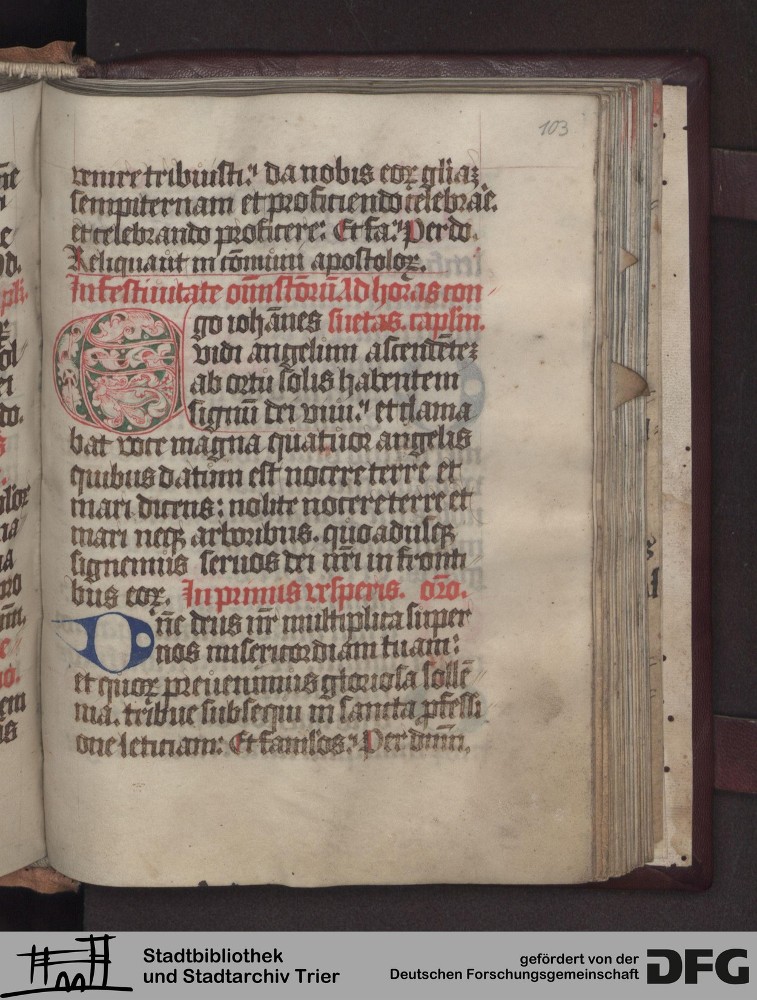 103
venire tribuisti:' da nobis eoꝝ gl̄iaʒ
sempiternam et proficiendo celebrar̄e.
et celebrando proficere: Et fa:' Per do.
Reliqua ut in cōmuni apostoloꝝ.
In festiuitate om̄i sc̄torū Ad horas con
go ioh̄anes suetas. capl̄m.
vidi angelum ascendēteʒ
ab ortu solis habentem
signū dei viui:' et clama
bat voce magna quatuor angelis
quibus datum est nocere terre et
mari dicens: nolite nocere terre et
mari neqꝫ arboribus. quoadusqꝫ
signemus seruos dei n̄ri in fronti
bus eoꝝ. In primis vesperis. or̄o.
Dn̄e deus nr̄ multiplica super
nos misericordiam tuam:
et quoꝝ preuenimus gloriosa sollē
nia. tribue subsequi in sancta ꝓfessi
one leticiam: Et famlos:' Per dm̄m.
Stadtbibliothek
und Stadtarchiv Trier
gefördert von der
Deutschen Forschungsgemeinschaft
DFG